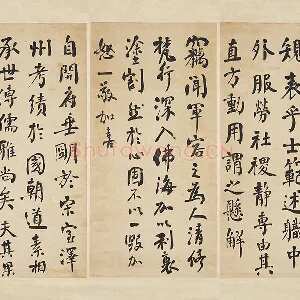 魏表乎士範述職中
外服勞社稷静專由其
直方動用謂之懸解
竊聞軍容之為人清修
梵行深入佛海加利衰
塗割並於心固不以一毀加
怒一敬加喜
自開府垂明於宗室澤
州考績於國朝道素相
承世傳儒雅尚矣夫其果